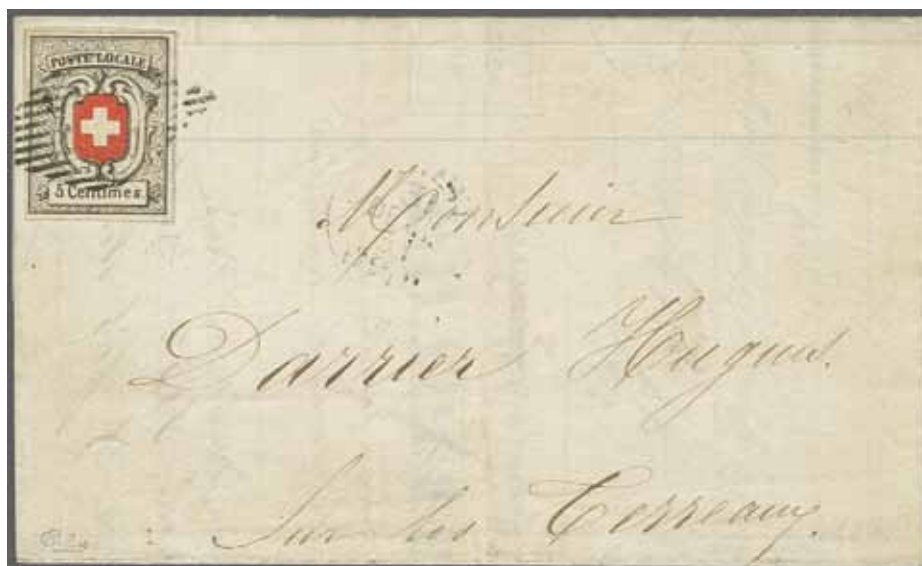 POSTE LOCALE
5 Centimes
Monsieur
Darrier Hugues.
Sur les Terreaux.